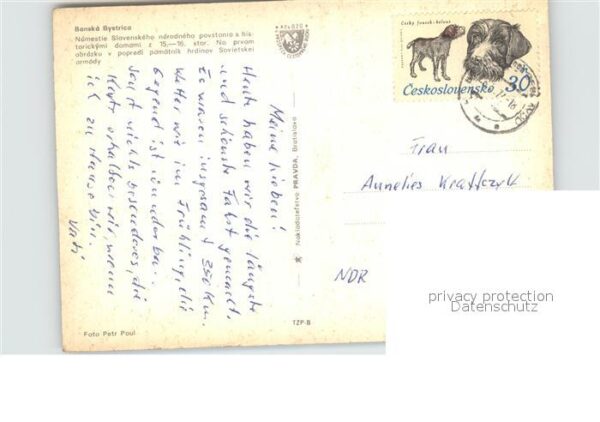 Banská Bystrica
Námestie Slovenského národného povstania s his-
torickými domami z 15.—16. stor. Na prvom
obrázku v popredí pamätník hrdinov Sovietskej
armády
Meine Lieben!
Heute haben wir die längste
und schönste Fahrt gemacht.
Es waren insgesamt 350 km.
Wetter wie im Frühling, die
Gegend ist wunderbar.
Sonst nichts besonderes, die
Karte erhalten wir, wenn
ich zu Hause bin.
Vati
Foto Petr Paul
Nakladateľstvo PRAVDA, Bratislava
TZP-B
Český fousek-belous
Československo 30
Frau
Annelies Krafczyk
NDR
privacy protection
Datenschutz